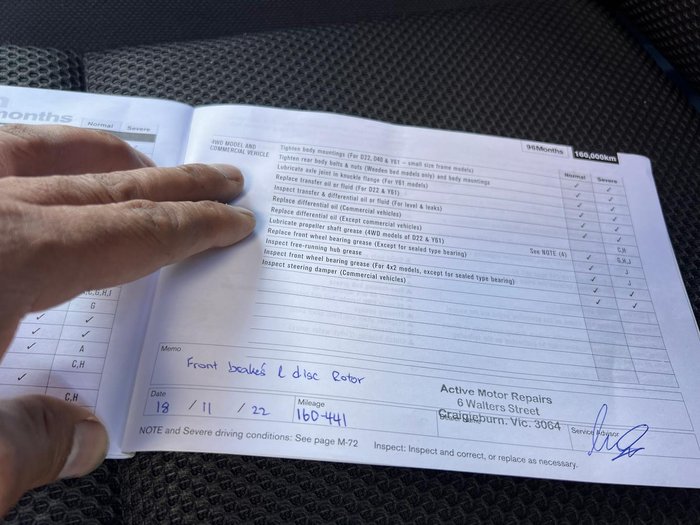 onths
Normal Severe
C,G,H,I
G
✓ ✓
✓ A
C,H
✓
C,H
96Months 160,000km
Normal Severe
4WD MODEL AND
COMMERCIAL VEHICLE
Tighten body mountings (For D22, D40 & Y61 - small size frame models)
Tighten rear body bolts & nuts (Wooden bed models only) and body mountings
Lubricate axle joint in knuckle flange (For Y61 models)
Replace transfer oil or fluid (For D22 & Y61)
Inspect transfer & differential oil or fluid (For level & leaks)
Replace differential oil (Commercial vehicles)
Replace differential oil (Except commercial vehicles)
Lubricate propeller shaft grease (4WD models of D22 & Y61)
Replace front wheel bearing grease (Except for sealed type bearing) See NOTE (4)
Inspect free-running hub grease
Inspect front wheel bearing grease (For 4x2 models, except for sealed type bearing)
Inspect steering damper (Commercial vehicles)
G,H
G,H,J
J
J
Memo
Front brakes & disc Rotor
Date
18 / 11 / 22
Mileage
160-441
Active Motor Repairs
6 Walters Street
Craigieburn. Vic. 3064
Service Advisor
NOTE and Severe driving conditions: See page M-72
Inspect: Inspect and correct, or replace as necessary.